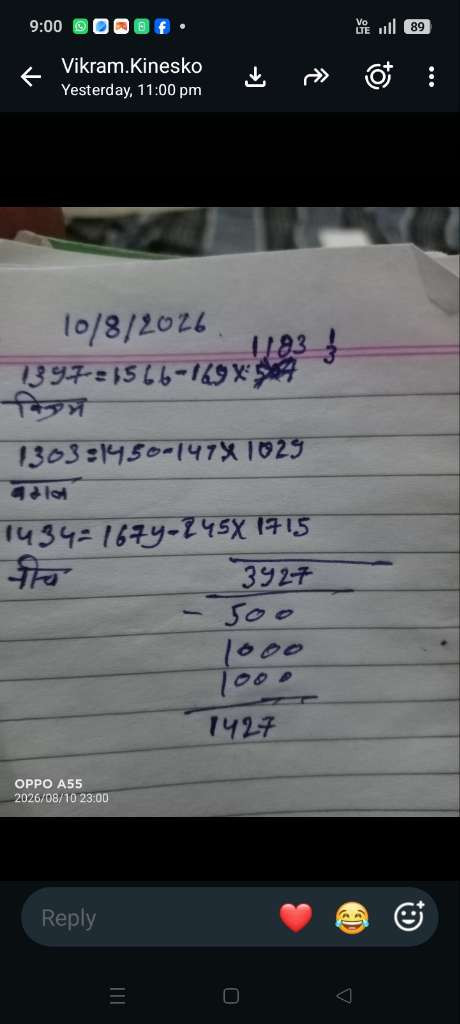 9:00
Vo LTE
89
Vikram.Kinesko
Yesterday, 11:00 pm
10/8/2026
1183 1/3
1397=1566-169x
विक्रम
1303=1450-147x1029
1434=1679-245x1715
नीचे
3927
- 500
1000
1000
1427
OPPO A55
2026/08/10 23:00
Reply